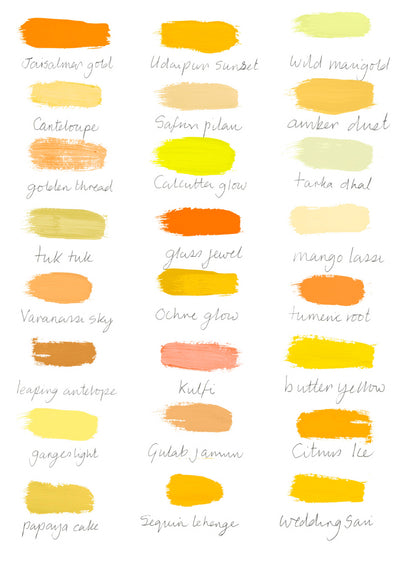 Jaisalmer gold
Udaipur Sunset
Wild marigold
Canteloupe
Safrun pilau
amber dust
golden thread
Calcutta glow
tarka dhal
tuk tuk
glass jewel
mango lassi
Varanassi sky
Ochre glow
tumeric root
leaping antelope
Kulfi
butter yellow
ganges light
Gulab jamun
Citrus Ice
papaya cake
Sequin lehenge
Wedding Sari